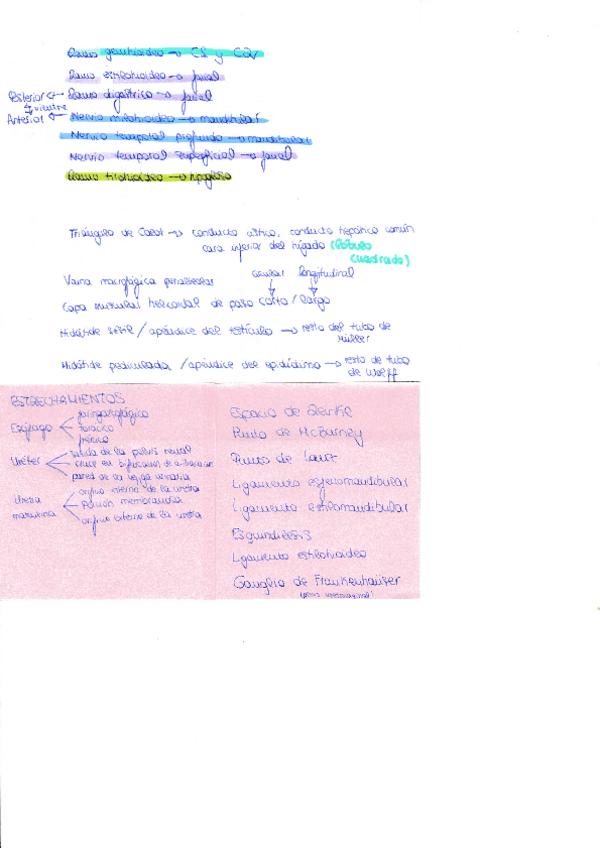 Ramo genihioideo → C1 y C2
Ramo estilohioideo → facial
Posterior ← Ramo digástrico → facial
vientre
Anterior ← Nervio milohioideo → mandibular
Nervio temporal profundo → mandibular
Nervio temporal superficial → facial
Ramo tirohioideo → hipogloso
Triángulo de Calot → conducto cístico, conducto hepático común
cara inferior del hígado (lóbulo
cuadrado)
circular longitudinal
Vaina
Capa muscular helicoidal de paso corto / largo
Hidátide sésil / apéndice del testículo → resto del tubo de
Müller
Hidátide pediculada / apéndice del epidídimo → resto de tubo
de Wolff
ESTRECHAMIENTOS
Esófago
faringoesofágico
torácico
frénico
Uréter
salida de la pelvis renal
cruce en bifurcación de a. iliaca
pared de la vejiga urinaria
Uretra
masculina
orificio interno de la uretra
Porción membranosa
orificio externo de la uretra
Espacio de
Punto de McBurney
Punto de Lanz
Ligamento esfenomandibular
Ligamento estilomandibular
Esquindilesis
Ligamento estilohioideo
Ganglio de Frankenhäuser